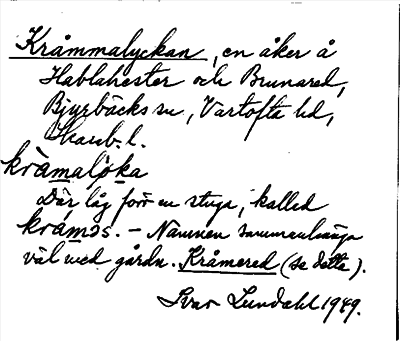 Kråmmalyckan, en åker å
Hablahester och Brunared,
Bjurbäcks sn, Vartofta hd,
Skarab. l.
kràmaløka
Där låg förr en stuga, kallad
kràməs. – Namnen sammanhänga
väl med gårdn. Kråmered (se detta).
Ivar Lundahl 1949.